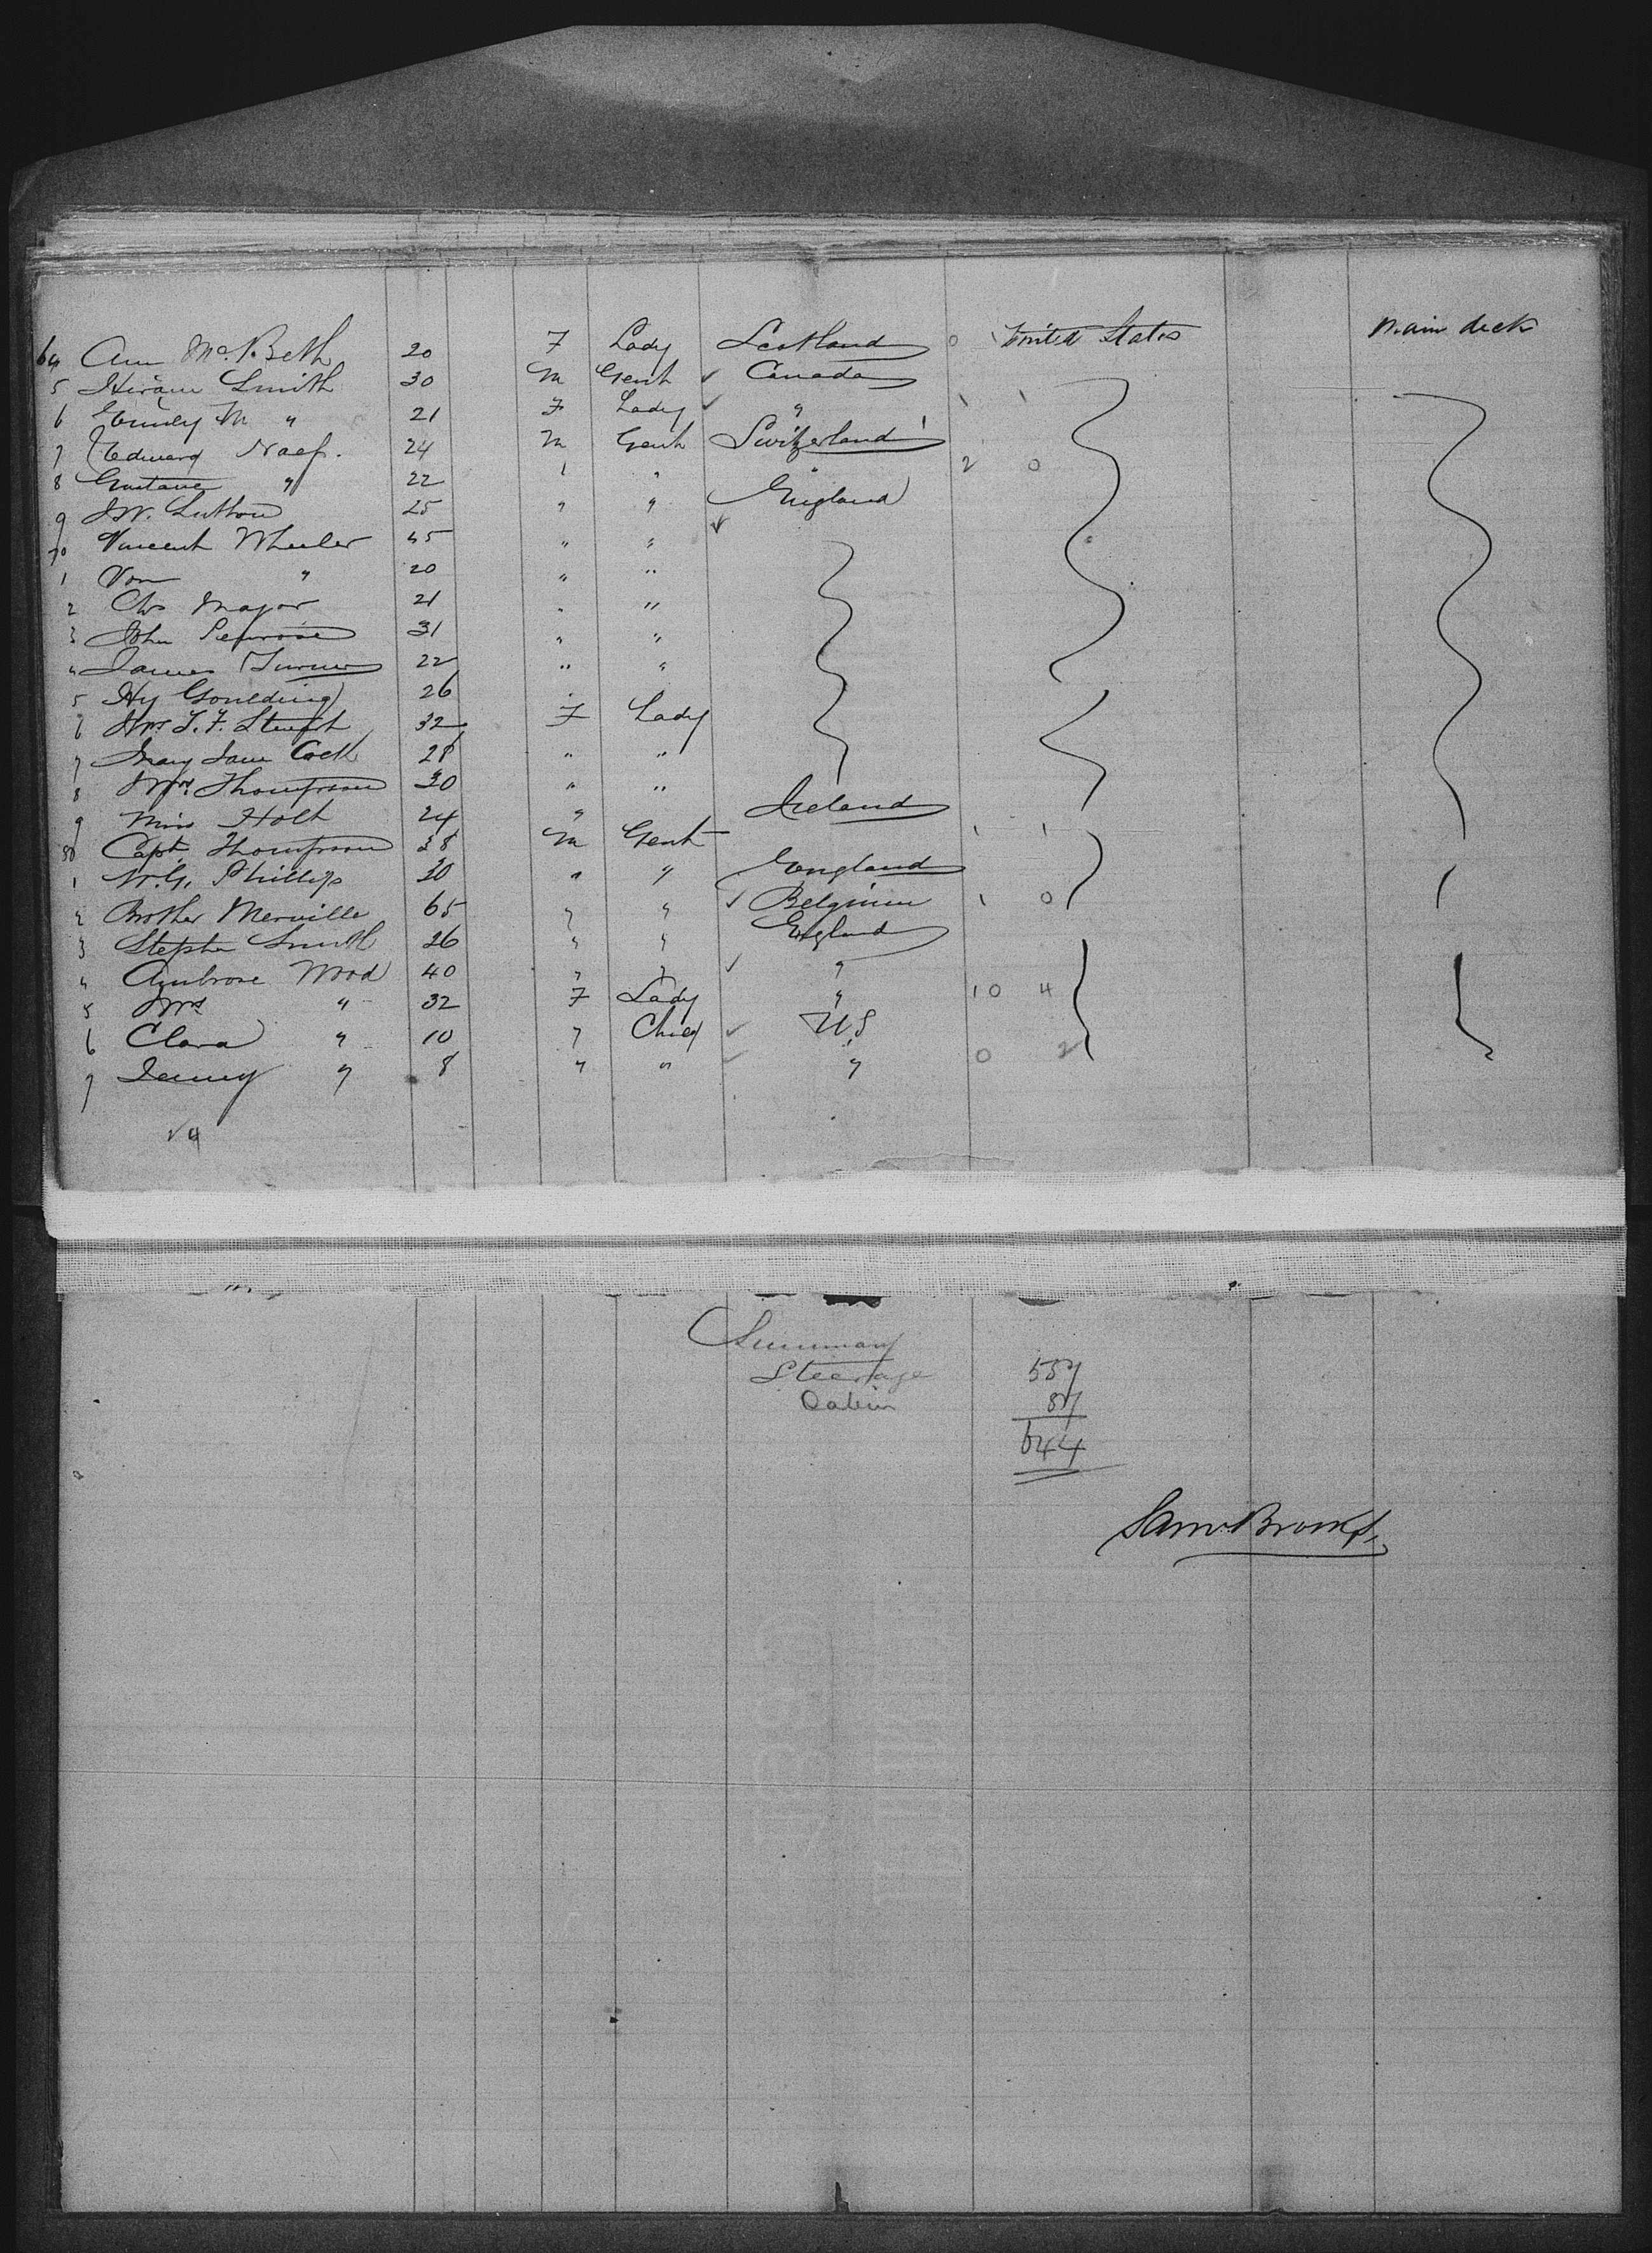 64 Ann McBeth 20 F Lady Scotland 0 1 United States Main deck
5 Hiram Smith 30 M Gent ✓ Canada
6 Emily M " 21 F Lady ✓ " 1 1
7 Edward Naef. 24 M Gent Switzerland
8 Gustave " 22 " " " 2 0
9 J.W. Sutton 25 " " England
70 Vincent Wheeler 45 " "
1 " 20 " "
2 Chs Major 21 " "
3 John Penrose 31 " "
4 James Turner 22 " "
5 Hy Goulding 26
6 Mrs T. F. 32 F Lady
7 Mary Jane Cock 28 " "
8 Mrs Thompson 30 " "
9 Miss Holt 24 " Ireland
80 Capt. Thompson 38 M Gent 1 1
1 W.G. Phillips 30 " " England
2 Brother Merville 65 " " ✓ Belgium 1 0
3 Stephen Smith 26 " " England
4 Ambrose Wood 40 " " ✓ "
5 Mrs " 32 F Lady " 10 4
6 Clara " 10 " Child ✓ U.S
7 Jenny " 8 " " ✓ " 0 2
24
Summary
Steerage 557
Cabin 87
644
Saml Brooks